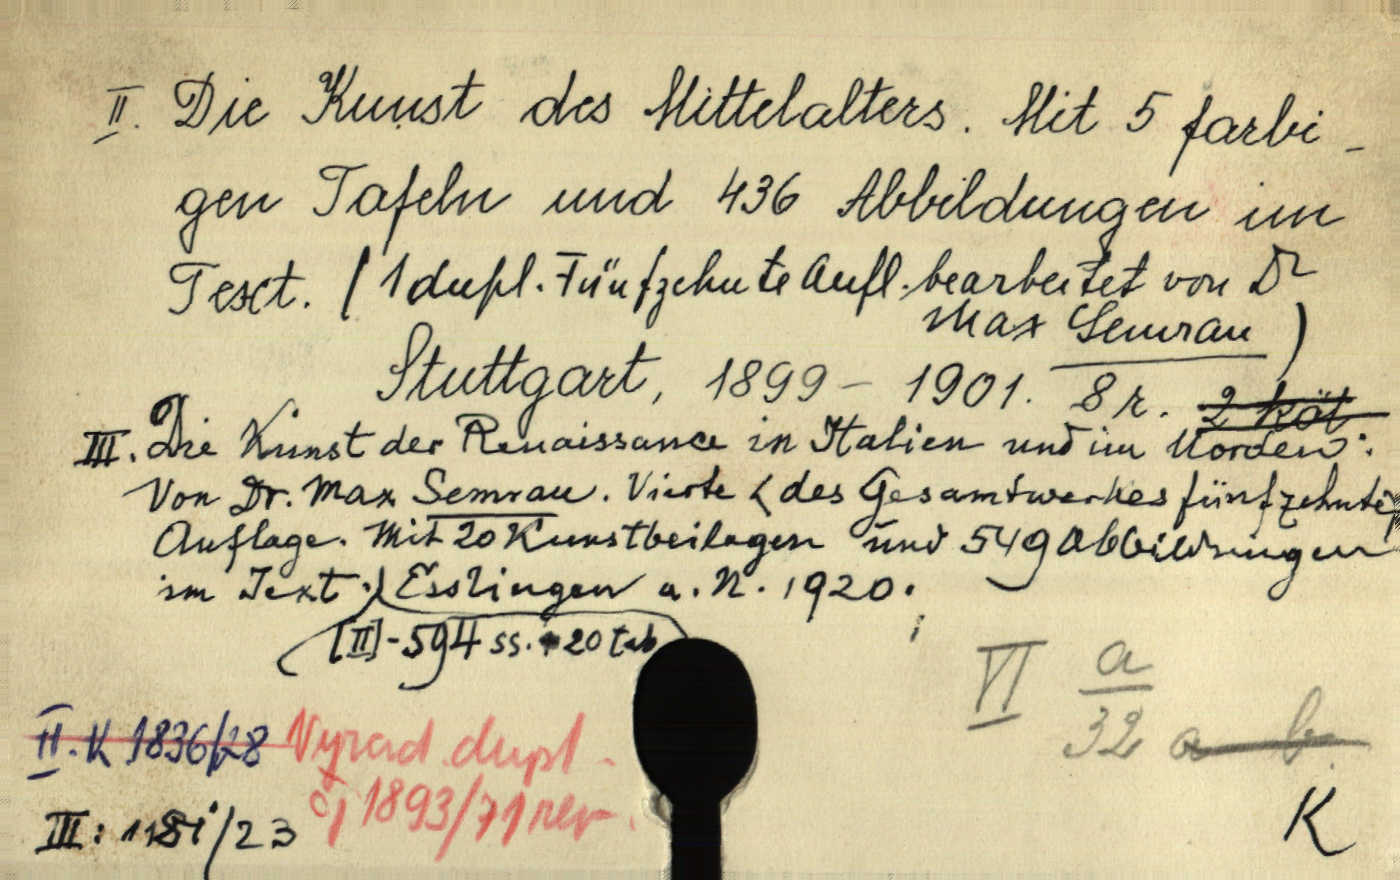 II. Die Kunst des Mittelalters. Mit 5 farbi-
gen Tafeln und 436 Abbildungen im
Text. (1 dupl. Fünfzehnte Aufl. bearbeitet von Dr
Max Semrau)
Stuttgart, 1899 – 1901. 8 r. 2 köt
III. Die Kunst der Renaissance in Italien und im Norden.
Von Dr. Max Semrau. Vierte (des Gesamtwerkes fünfzehnte)
Auflage. Mit 20 Kunstbeilagen und 549 Abbildungen
im Text. Esslingen a. N. 1920.
[II] - 594 ss. + 20 tab
VI a/32 a b.
II. K 1836/28 Vyrad. dupl.
čj 1893/71 rev.
III: /23
K